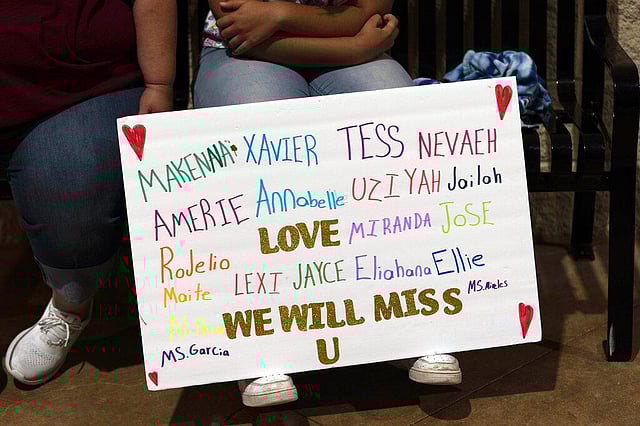 MAKENNA XAVIER TESS NEVAEH
AMERIE Annabelle UZIYAH Jailah
LOVE MIRANDA JOSE
RoJelio LEXI JAYCE Eliahana Ellie
Maite
WE WILL MISS MS. Mireles
MS. Garcia U